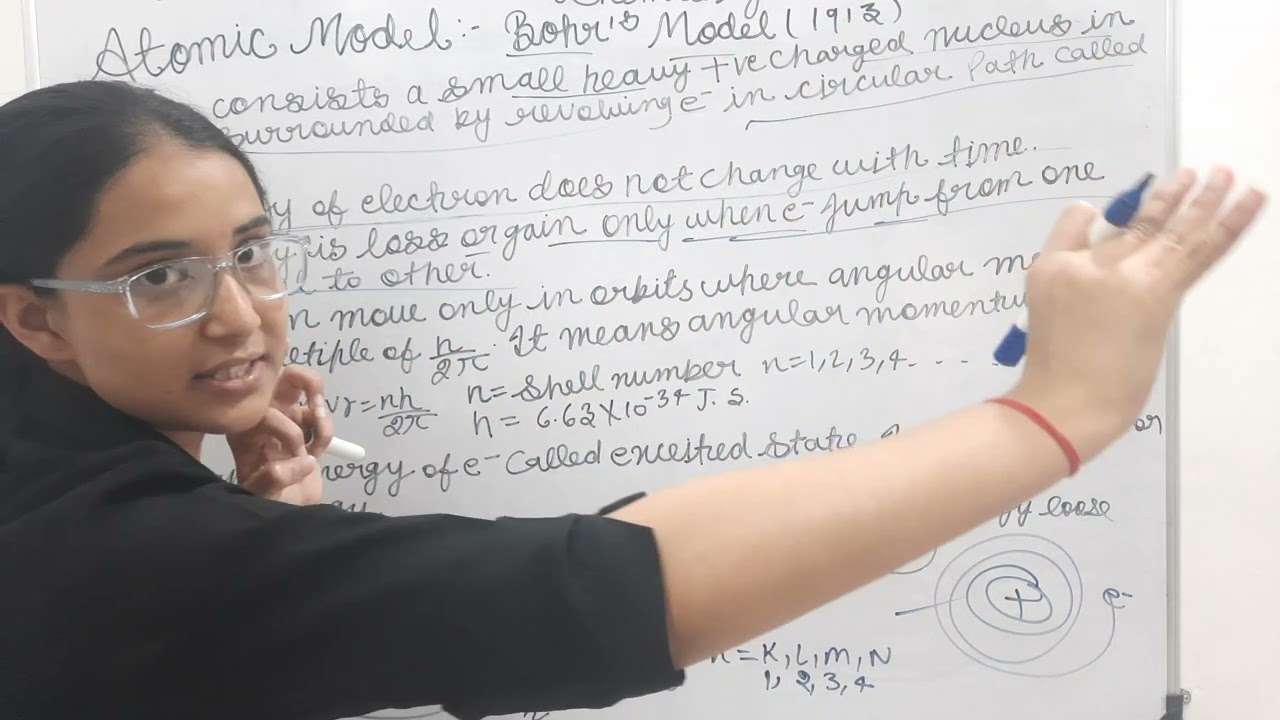 Atomic Model:- Bohr's Model (1913)
consists a small heavy +ve charged nucleus in
surrounded by revolving e- in circular Path called
of electron does not change with time.
is loss or gain only when e- jump from one
to other.
move only in orbits where angular
of n/2π. It means angular momentu
vr = nh/2π n = shell number n=1,2,3,4- - -
h = 6.63 X 10^-34 J. S.
nergy of e- called excited state
loose
e-
+
= K, L, M, N
1, 2, 3, 4